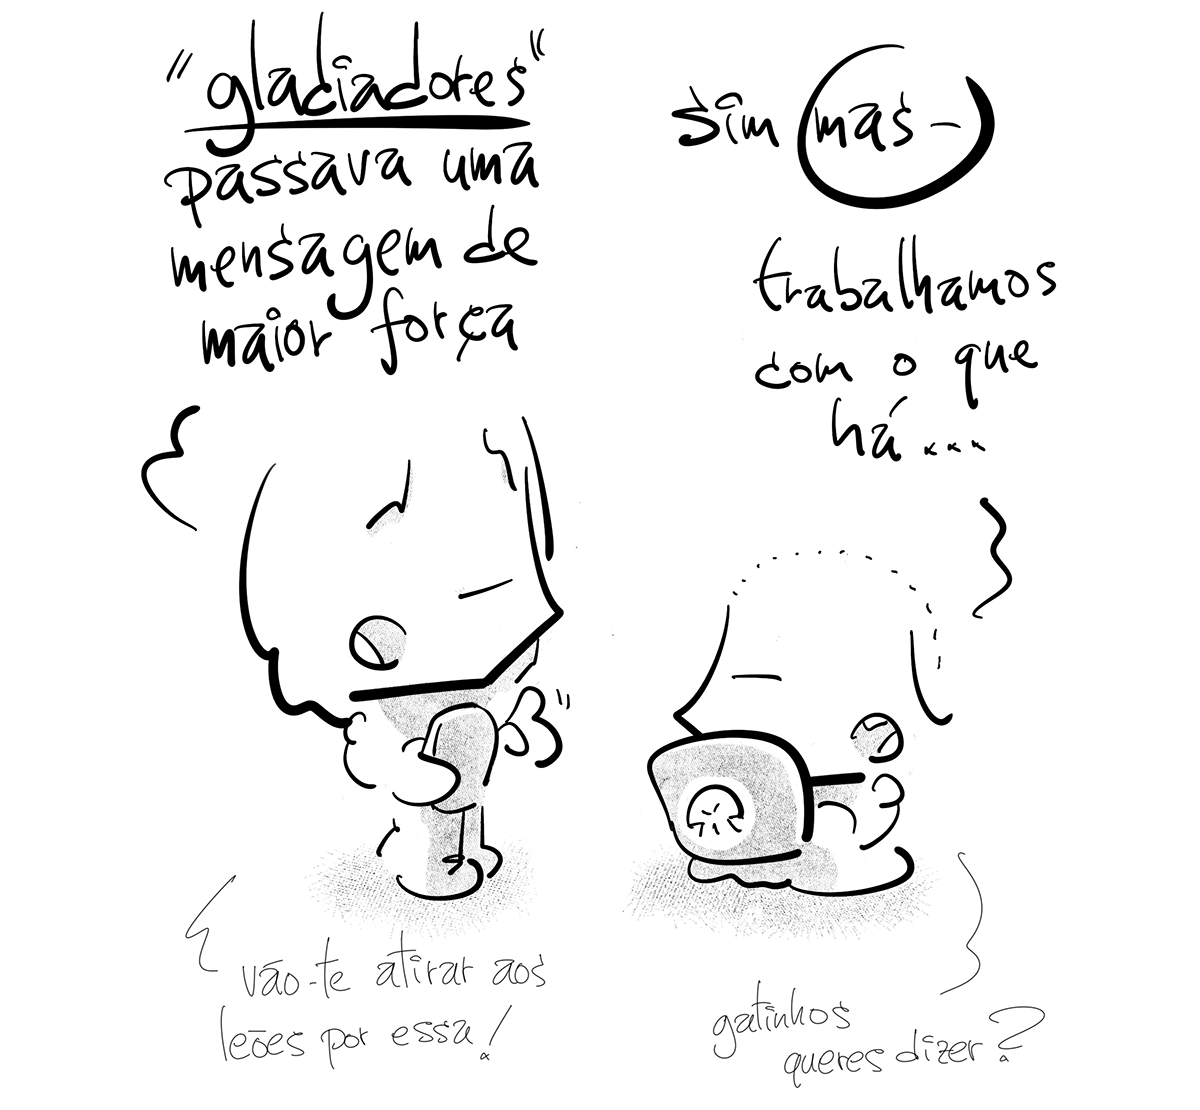 "gladiadores"
passava uma
mensagem de
maior força
sim mas-
trabalhamos
com o que
há...
vão-te atirar aos
leões por essa!
gatinhos
queres dizer?